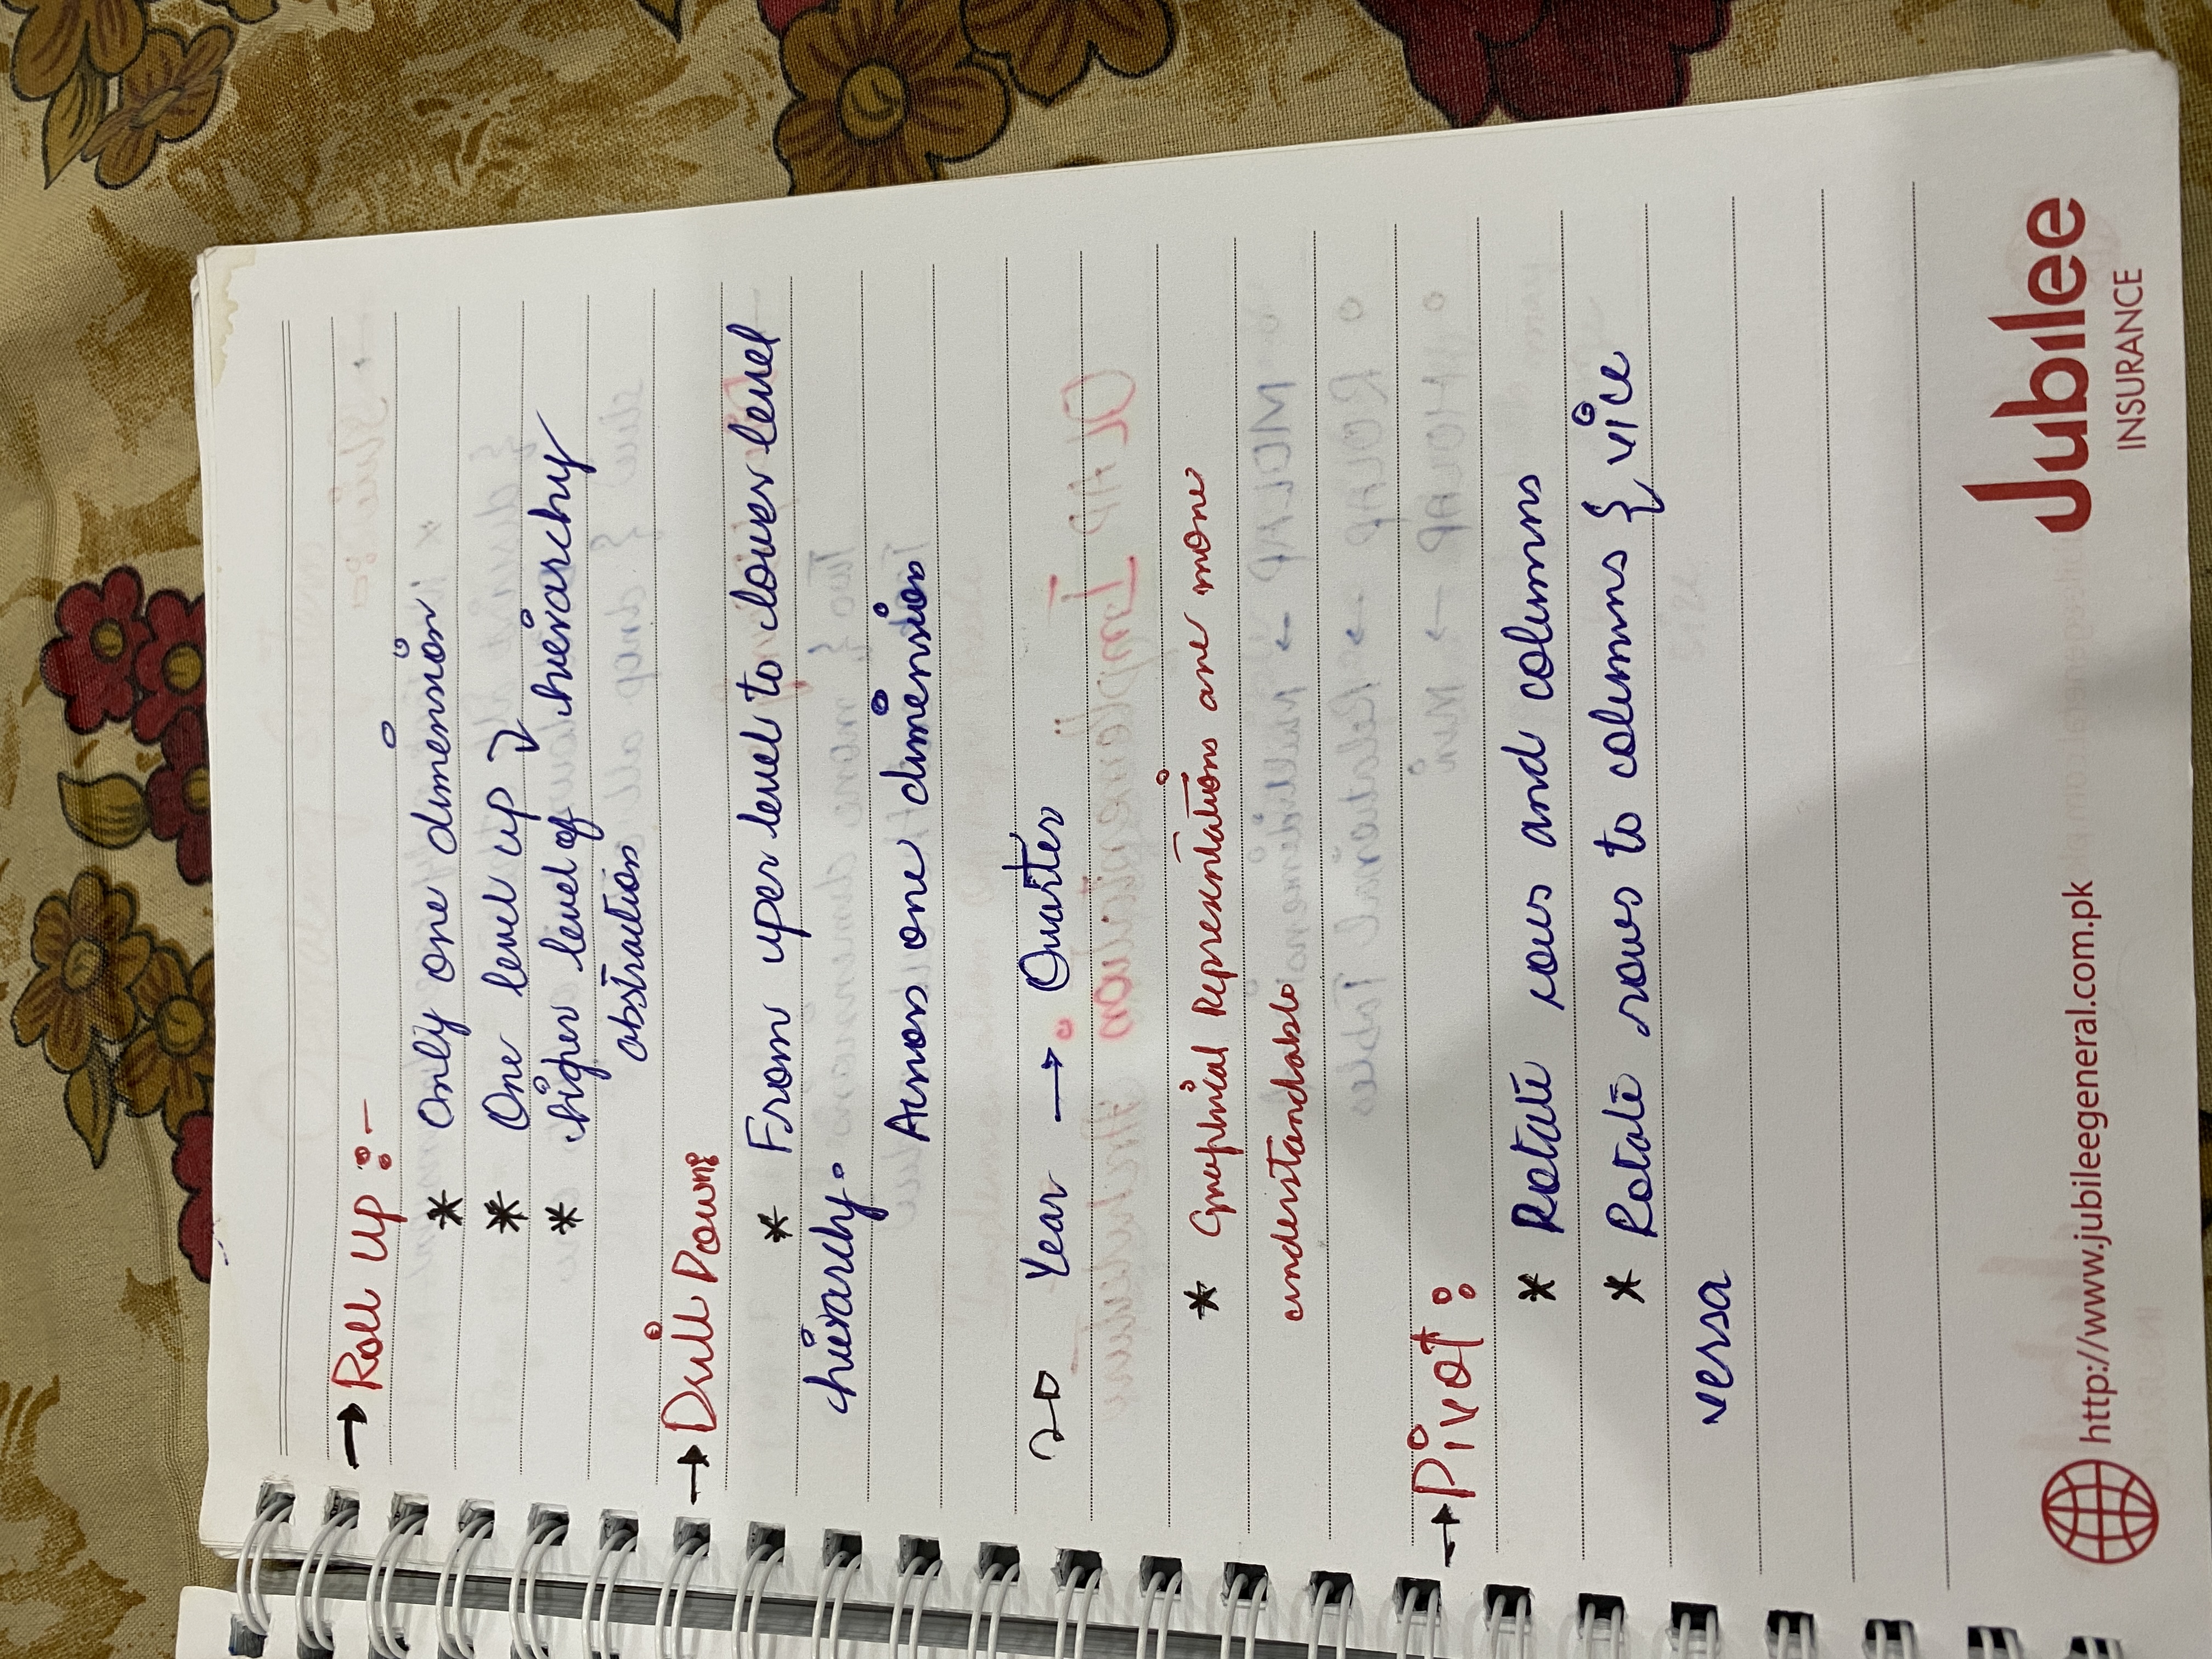 → Roll Up :-
* Only one dimension
* One level up ↴
* higher level of hierarchy
abstraction
→ Drill Down:
* From uper level to lower level
hierarchy.
Across one dimension
Year → Quarter
* Graphical Representations are more
understandable
→ Pivot :
* Rotate rows and columns
* Rotate rows to columns & vice
versa
http://www.jubileegeneral.com.pk
Jubilee
INSURANCE